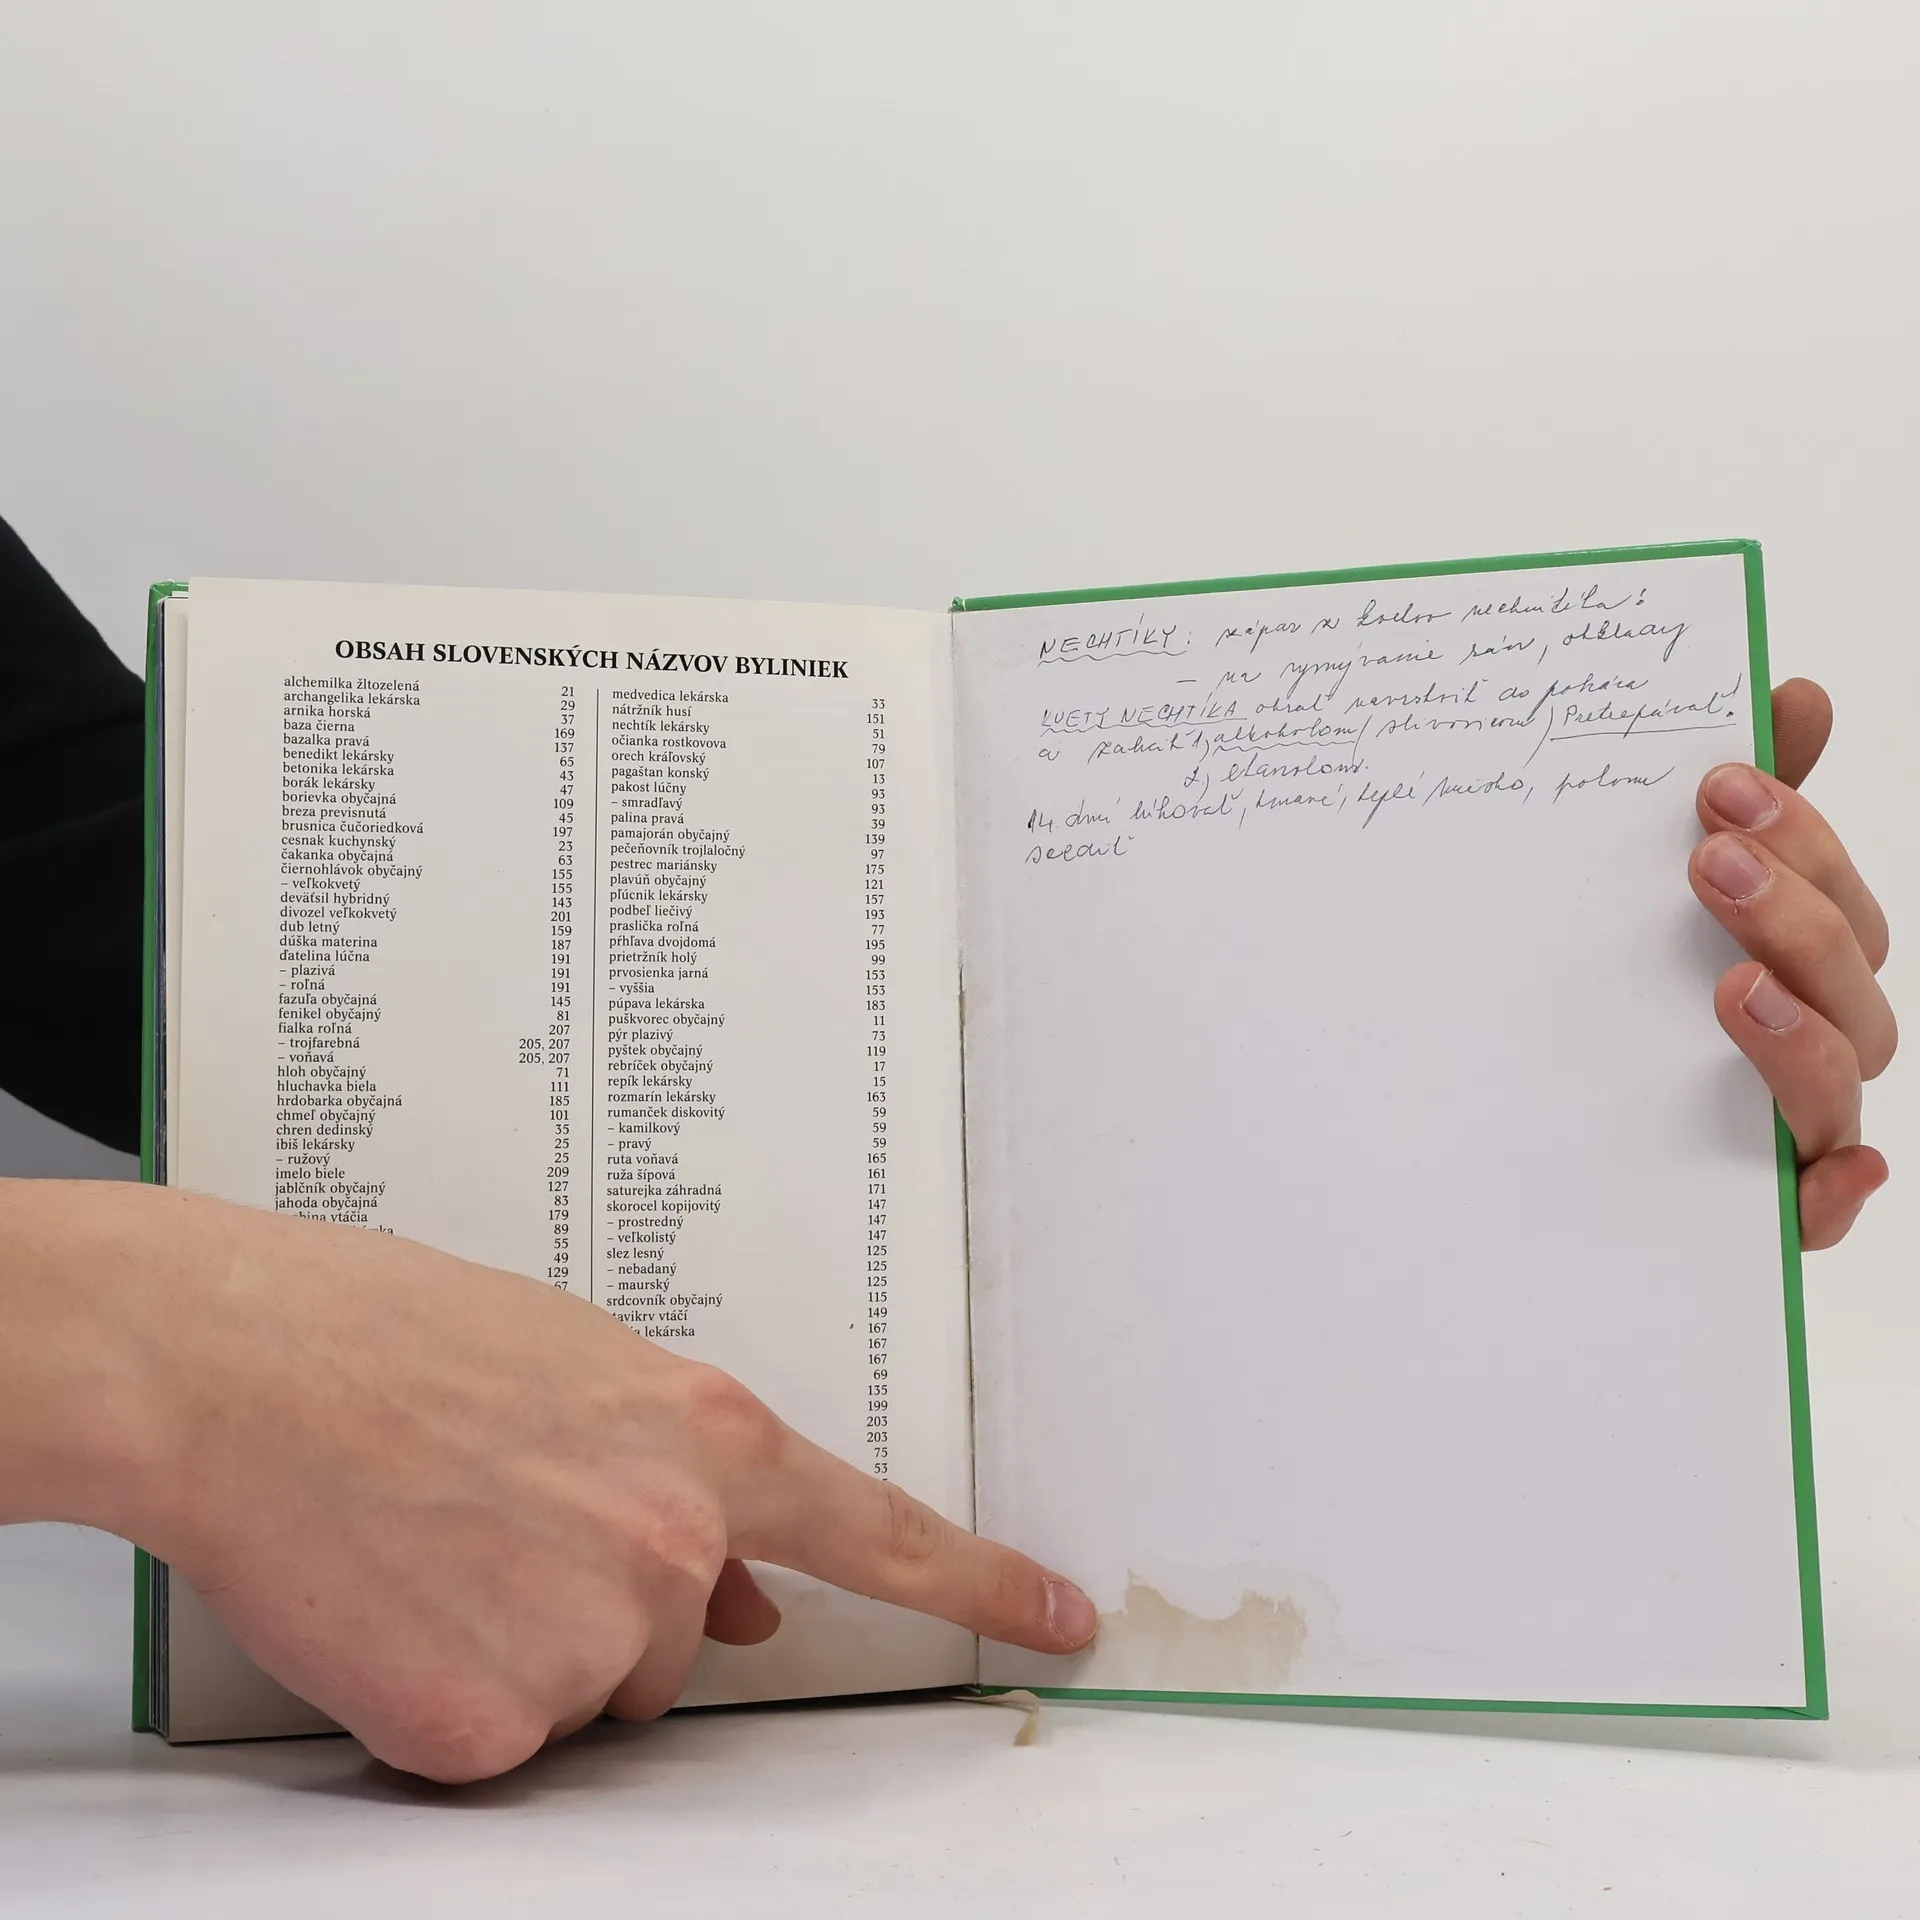 OBSAH SLOVENSKÝCH NÁZVOV BYLINIEK
alchemilka žltozelená 21
archangelika lekárska 29
arnika horská 37
baza čierna 169
bazalka pravá 137
benedikt lekársky 65
betonika lekárska 43
borák lekársky 47
borievka obyčajná 109
breza previsnutá 45
brusnica čučoriedková 197
cesnak kuchynský 23
čakanka obyčajná 63
čiernohlávok obyčajný 155
– veľkokvetý 155
deväťsil hybridný 143
divozel veľkokvetý 201
dub letný 159
dúška materina 187
ďatelina lúčna 191
– plazivá 191
– roľná 191
fazuľa obyčajná 145
fenikel obyčajný 81
fialka roľná 207
– trojfarebná 205, 207
– voňavá 205, 207
hloh obyčajný 71
hluchavka biela 111
hrdobarka obyčajná 185
chmeľ obyčajný 101
chren dedinský 35
ibiš lekársky 25
– ružový 25
imelo biele 209
jablčník obyčajný 127
jahoda obyčajná 83
vtáčia 179
89
55
49
129
67
medvedica lekárska 33
nátržník husí 151
nechtík lekársky 51
očianka rostkovova 79
orech kráľovský 107
pagaštan konský 13
pakost lúčny 93
– smradľavý 93
palina pravá 39
pamajorán obyčajný 139
pečeňovník trojlaločný 97
pestrec mariánsky 175
plavúň obyčajný 121
pľúcnik lekársky 157
podbeľ liečivý 193
praslička roľná 77
pŕhľava dvojdomá 195
prietržník holý 99
prvosienka jarná 153
– vyššia 153
púpava lekárska 183
puškvorec obyčajný 11
pýr plazivý 73
pyštek obyčajný 119
rebríček obyčajný 17
repík lekársky 15
rozmarín lekársky 163
rumanček diskovitý 59
– kamilkový 59
– pravý 59
ruta voňavá 165
ruža šípová 161
saturejka záhradná 171
skorocel kopijovitý 147
– prostredný 147
– veľkolistý 147
slez lesný 125
– nebadaný 125
– maurský 125
srdcovník obyčajný 115
vtáčí 149
lekárska 167
167
167
69
135
199
203
203
75
53
NECHTÍKY: zápar z kvetov nechtíka:
– na vymývanie rán, obklady
KVETY NECHTÍKA obrať navrstviť do pohára
a zaliať 1, alkoholom (slivovicou) Pretrepávať!
2, etanolom.
14 dní lúhovať, tmavé, teplé miesto, potom
scediť